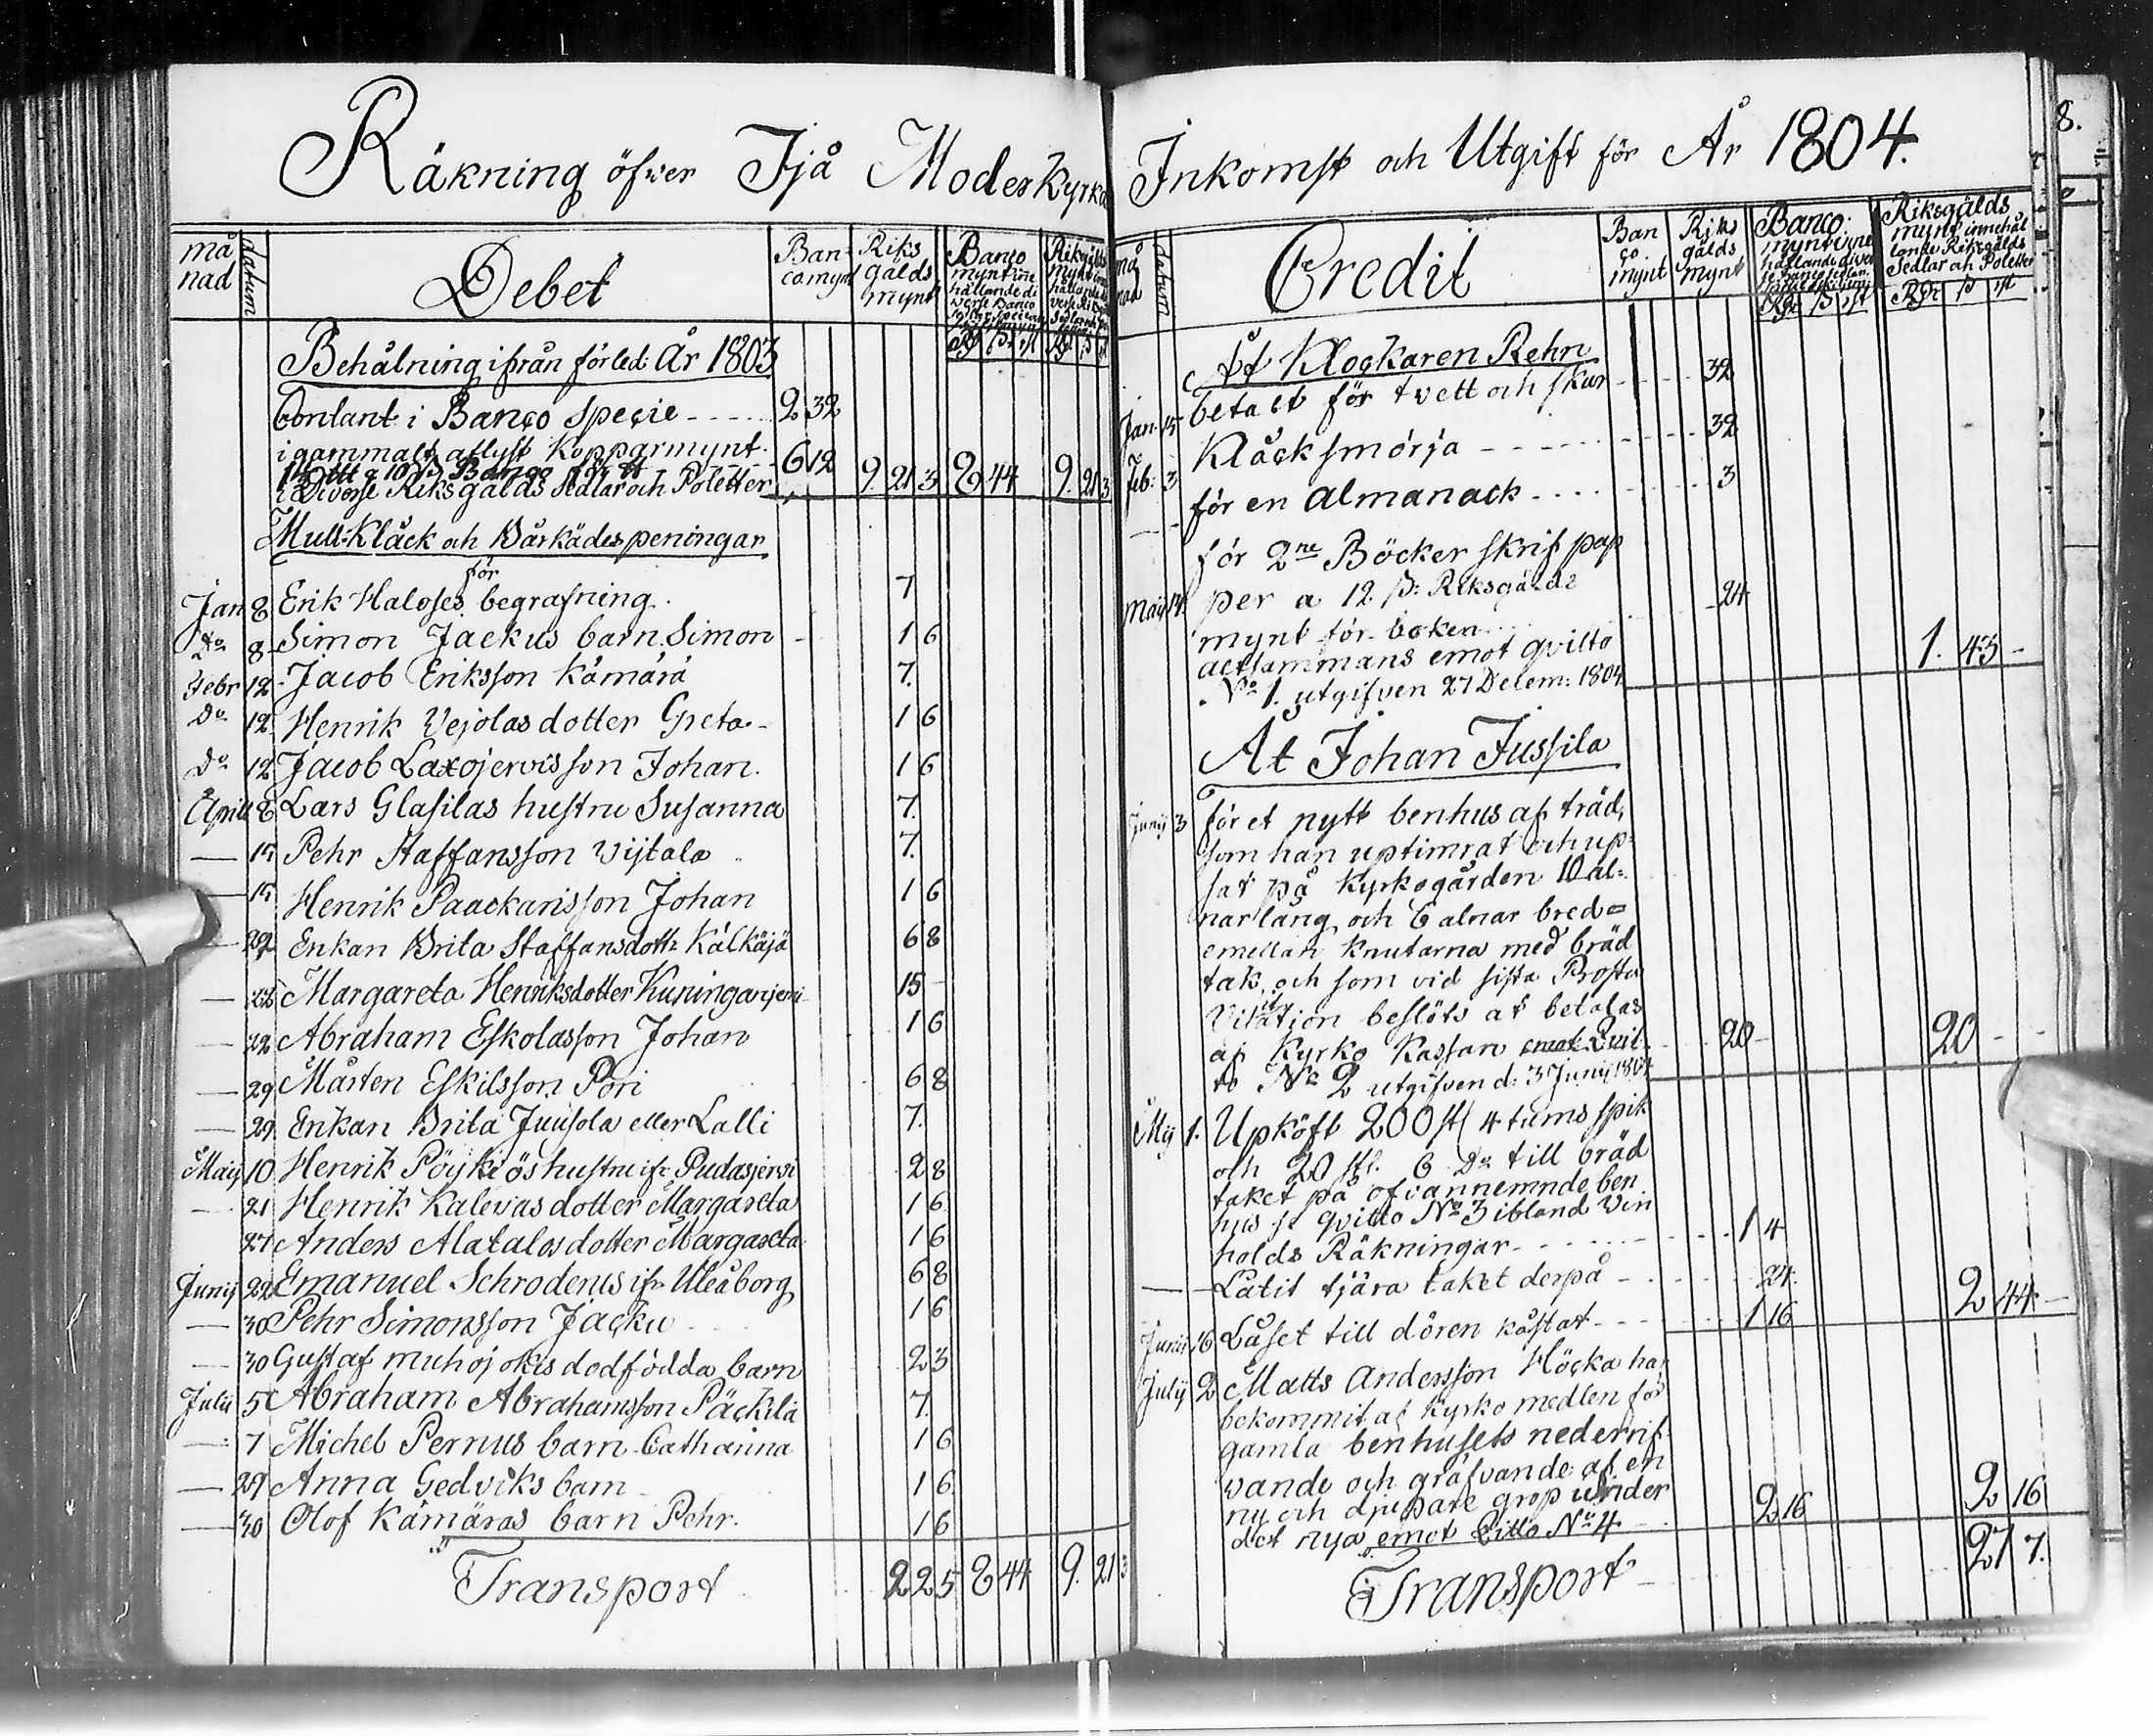 Räkning öfwer Ijå Moderkyrko
må
nad
datum
Debet
Ban-
co mynt
Riks
gälds
mynt
Banco
mynt inne
hållande di
verse Banco
Behålning ifrån förled: År 1803
Contant i Banco specie - - - - - 2 32
i gammalt aflyst Kopparmynt
a 10 ß Banco 6 12
i Diverse Riksgälds Sedlar och Poletter 9. 21 3 8 44 9. 21 3
Mull-Klåck och Bårkädespeningar
för
Jan 8 Erik Haloses begrafning. 7
do 8 Simon Jackus barn Simon - 1 6
Febr 12 Jacob Eriksson Kämärä 7.
Do 12 Henrik Vejolas dotter Greta - 1 6
Do 12 Jacob Laxojervis son Johan. 1 6
April 8 Lars Glasilas hustru Susanna 7.
— 15 Pehr Staffansson Vijtala 7.
— 15 Henrik Paackaris son Johan 1 6
— 22 Enkan Brita Staffansdottr Kälkäjä 6 8
— 22 Margareta Henriksdotter Kuningarjemi 15 -
— 22 Abraham Eskolas son Johan 1 6
— 29 Mårten Eskilsson Pori 6 8
— 29 Enkan Brita Juusola eller Lalli 7.
Maij 10 Henrik Pöykiös hustru ifr. Pudasjervi 2 8
— 21 Henrik Kalevas dotter Margareta 1 6
27 Anders Alatalos dotter Margareta 1 6
Junij 22 Emanuel Schroderus ifr Uleåborg 6 8
— 30 Pehr Simonsson Jacku 1 6
— 30 Gustaf muhojokis dödfödda barn 2 3
Julii 5 Abraham Abrahamsson Päckilä 7.
— 7 Michel Pernus barn Catharina 1 6
— 29 Anna Gedviks barn 1 6
— 30 Olof Kämäräs barn Pehr. 1 6
Transport 2 2 5 8 44 9. 21 3
Inkomst och Utgift för År 1804.
må
nad
datum
Credit
Ban
co
mynt
Riks
gälds
mynt
Banco
mynt inne
hållande diver
se Banco sedlar
Riksgälds
mynt innehål
lande Riksgälds
Sedlar och Poletter
Åt Klockaren Rehn
Jan. 15 betalt för tvett och skur - - - - 32
Feb: 3 Klåcksmörja - - - - 32
— för en almanack - - - - 3
för 2ne Böcker skrif pap
Maij 14 per a 12 ß: Riksgälds
mynt för boken - 24
altsammans emot qvitto
No 1. utgifven 27 Decem: 1804 1. 43 -
At Johan Jussila
Junij 3 för et nytt benhus af träd,
som han uptimrat och up-
sat på Kyrkogården 10 al-
nar lång och 6 alnar bred
emellan knutarna med bräd
tak, och som vid sista Prosta
Visitation beslöts at betalas
af Kyrko Kassan emot Qvit- 20 - 20 -
to No 2 utgifven d: 3 Junij 1804
Mij 1. Upköft 200 st 4 tums spik
och 20 st. 6 Do till bräd
taket på ofvannemnde ben
hus se qvitto No 3 ibland Vin
holds Räkningar - - - - 1 4
— Låtit tjära taket derpå - - - 24.
Junii 16 Låset till dören kåstat - - - 1 16 2 44 -
Julij 2 Matts Andersson Höcka har
bekommit af Kyrko medlen för
gamla benhusets nederrif-
vande och gräfvande af en
ny och djupare grop under
det nya emot Qitto No 4 2 16 2 16
Transport 27 7.
8.